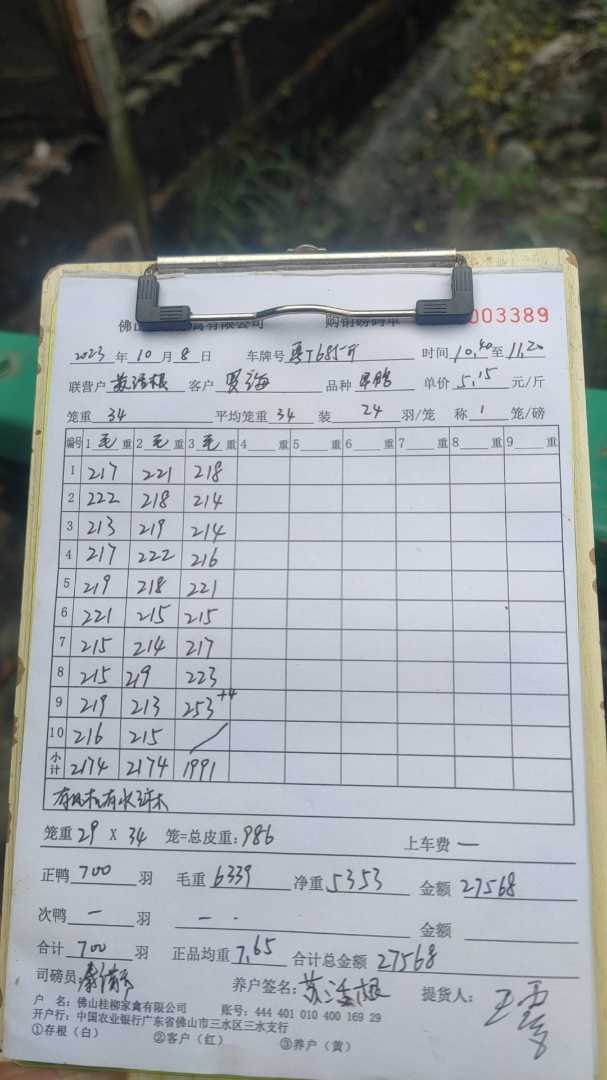 佛山 禽有限公司 购销磅码单 003389
2023 年 10 月 8 日 车牌号 时间 10,40 至 11,20
联营户 苏活根 客户 罗海 品种 单价 5,15 元/斤
笼重 34 平均笼重 34 装 24 羽/笼 称 1 笼/磅
编号 1 毛 重 2 毛 重 3 毛 重 4 重 5 重 6 重 7 重 8 重 9 重
1 217 221 218
2 222 218 214
3 213 219 214
4 217 222 216
5 219 218 221
6 221 215 215
7 215 214 217
8 215 219 223
9 219 213 253 +4
10 216 215 /
小计 2174 2174 1991
笼重 29 X 34 笼=总皮重: 986 上车费 一
正鸭 700 羽 毛重 6339 净重 5353 金额 27568
次鸭 一 羽 一 . 金额
合计 700 羽 正品均重 7,65 合计总金额 27568
司磅员 养户签名: 苏活根 提货人:
户 名: 佛山桂柳家禽有限公司 账号: 444 401 010 400 169 29
开户行: 中国农业银行广东省佛山市三水区三水支行
①存根（白） ②客户（红） ③养户（黄）